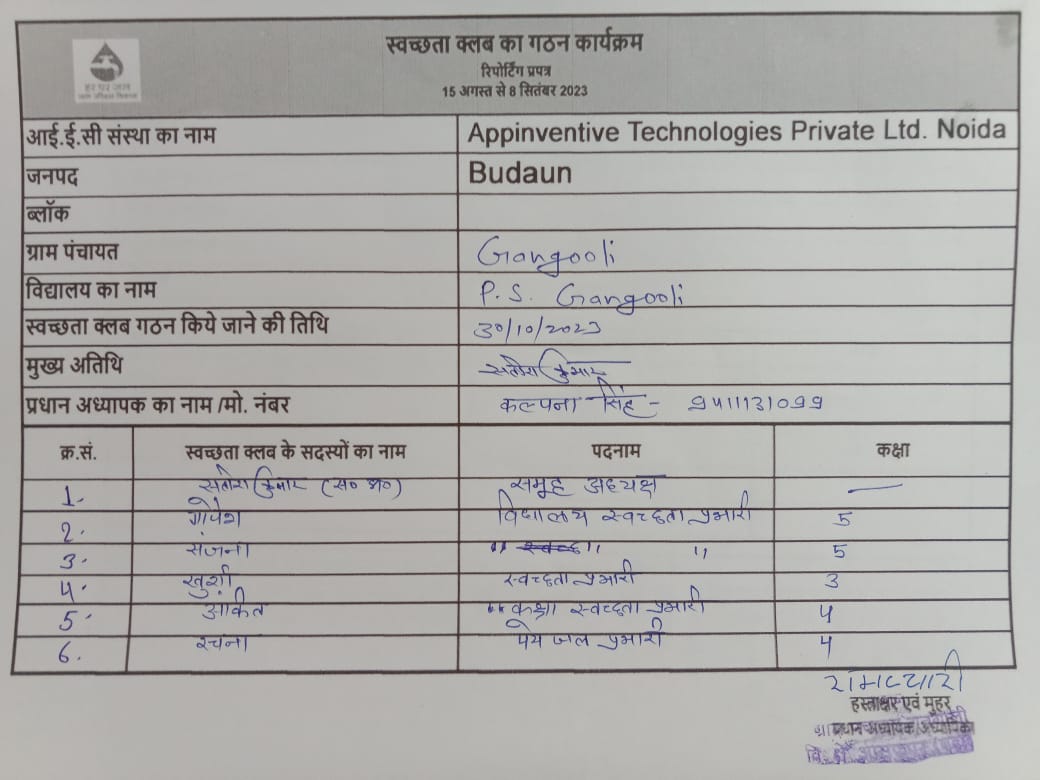 स्वच्छता क्लब का गठन कार्यक्रम
रिपोर्टिंग प्रपत्र
15 अगस्त से 8 सितंबर 2023
हर घर जल
आई.ई.सी संस्था का नाम Appinventive Technologies Private Ltd. Noida
जनपद Budaun
ब्लॉक
ग्राम पंचायत Gangooli
विद्यालय का नाम P.S. Gangooli
स्वच्छता क्लब गठन किये जाने की तिथि 30/10/2023
मुख्य अतिथि सतीश कुमार
प्रधान अध्यापक का नाम /मो. नंबर कल्पना सिंह - 9411131099
क्र.सं. स्वच्छता क्लब के सदस्यों का नाम पदनाम कक्षा
1. सतीश कुमार (स० अ०) समूह अध्यक्ष —
2. गोपेश विद्यालय स्वच्छता प्रभारी 5
3. संजना " " " 5
4. खुशी स्वच्छता प्रभारी 3
5. अंकित कक्षा स्वच्छता प्रभारी 4
6. रचना पेय जल प्रभारी 4
रामप्यारी
हस्ताक्षर एवं मुहर
प्रधान अध्यापक/अध्यापिका